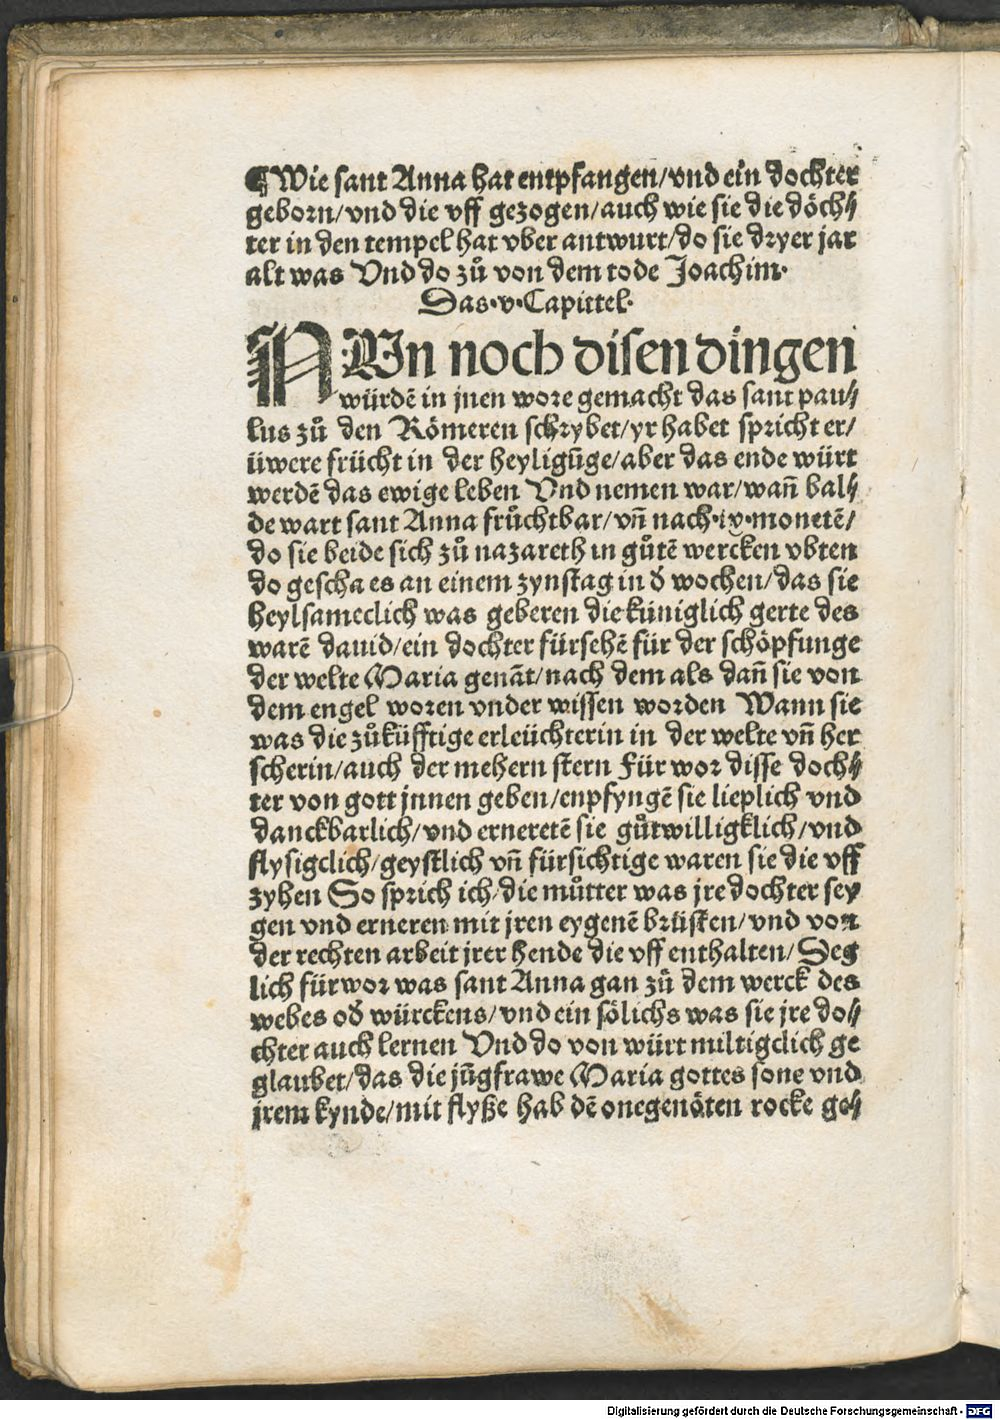 ¶ Wie sant Anna hat entpfangen/vnd ein dochter
geborn/vnd die vff gezogen/auch wie sie die döch⸗
ter in den tempel hat vber antwurt/do sie dryer jar
alt was Vnd do zuͦ von dem tode Joachim.
Das .v. Capittel.
NVn noch disen dingen
würdē in jnen wore gemacht das sant pau⸗
lus zuͦ den Römeren schrybet/yr habet spricht er/
üwere frücht in der heyligūge/aber das ende würt
werdē das ewige leben Vnd nemen war/wañ bal⸗
de wart sant Anna fruͤchtbar/vñ nach .ix. monetē/
do sie beide sich zuͦ nazareth in guͦtē wercken vbten
do gescha es an einem zynstag in d̄ wochen/das sie
heylsameclich was geberen die küniglich gerte des
warē dauid/ein dochter fürsehē für der schöpfunge
der welte Maria genāt/nach dem als dañ sie von
dem engel woren vnder wissen worden Wann sie
was die zuͦküfftige erleüchterin in der welte vñ her
scherin/auch der mehern stern Für wor disse doch⸗
ter von gott jnnen geben/enpfyngē sie lieplich vnd
danckbarlich/vnd erneretē sie guͦtwilligklich/vnd
flysigclich/geystlich vñ fürsichtige waren sie die vff
zyhen So sprich ich/die muͦtter was jre dochter sey
gen vnd erneren mit jren eygenē brüsten/vnd von
der rechten arbeit jrer hende die vff enthalten/Seg
lich fürwor was sant Anna gan zuͦ dem werck des
webes od̄ würckens/vnd ein sölichs was sie jre do⸗
chter auch lernen Vnd do von würt miltigclich ge
glaubet/das die jūgfrawe Maria gottes sone vnd
jrem kynde/mit flyße hab dē onegenäten rocke ge⸗
Digitalisierung gefördert durch die Deutsche Forschungsgemeinschaft - DFG